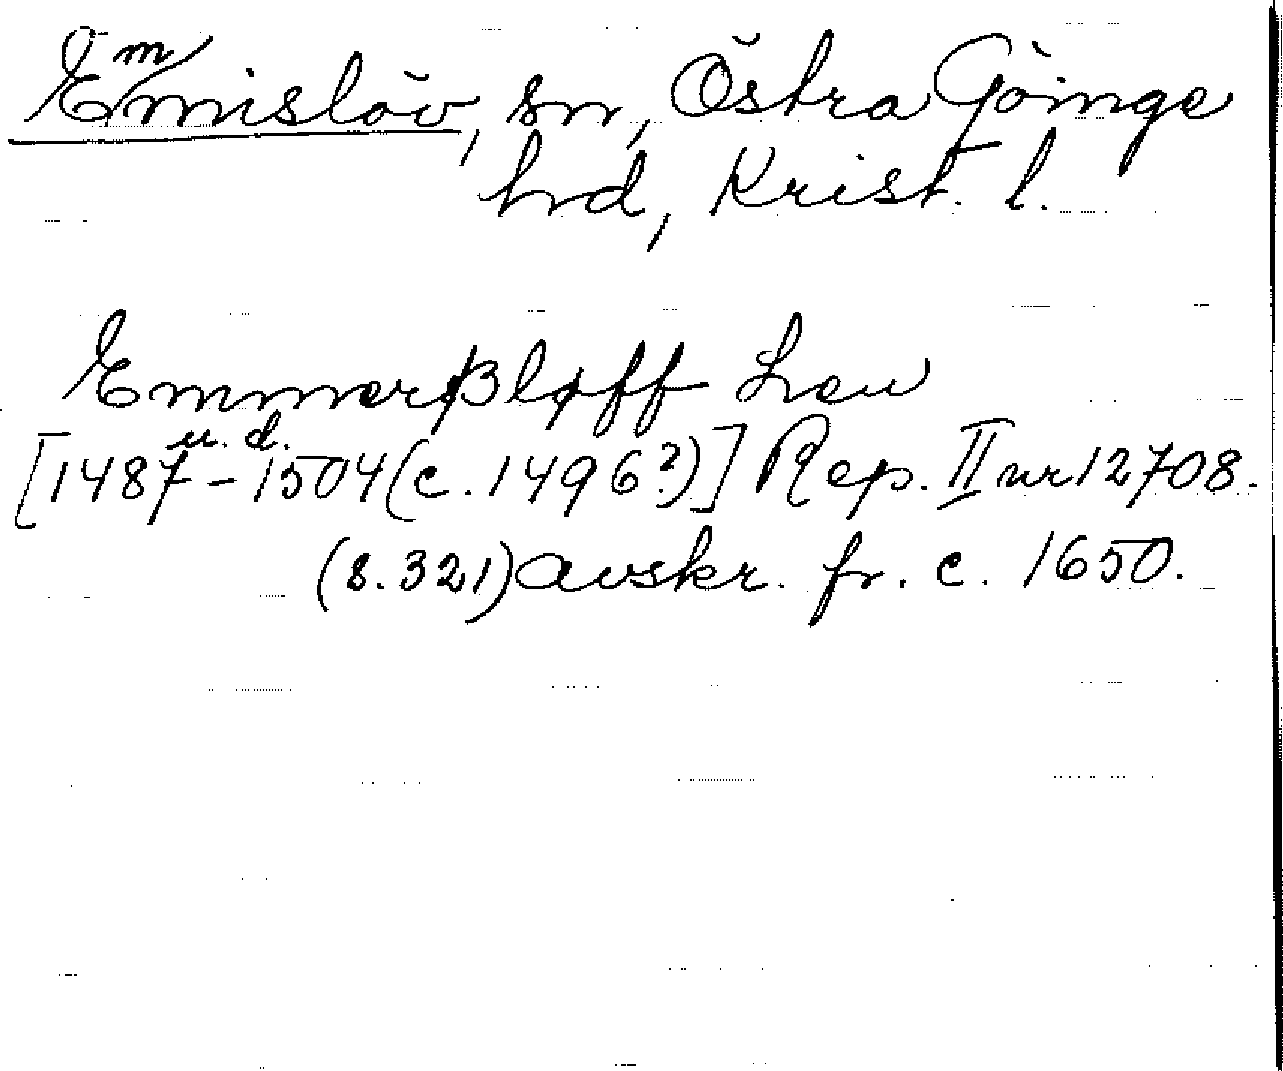 Emmislöv, sn, Östra Göinge
hd, Krist. l.
Emmerßløff Leu
[1487 u. d. - 1504 (c. 1496?)] Rep. II nr 12708.
(s. 321) avskr. fr. c. 1650.